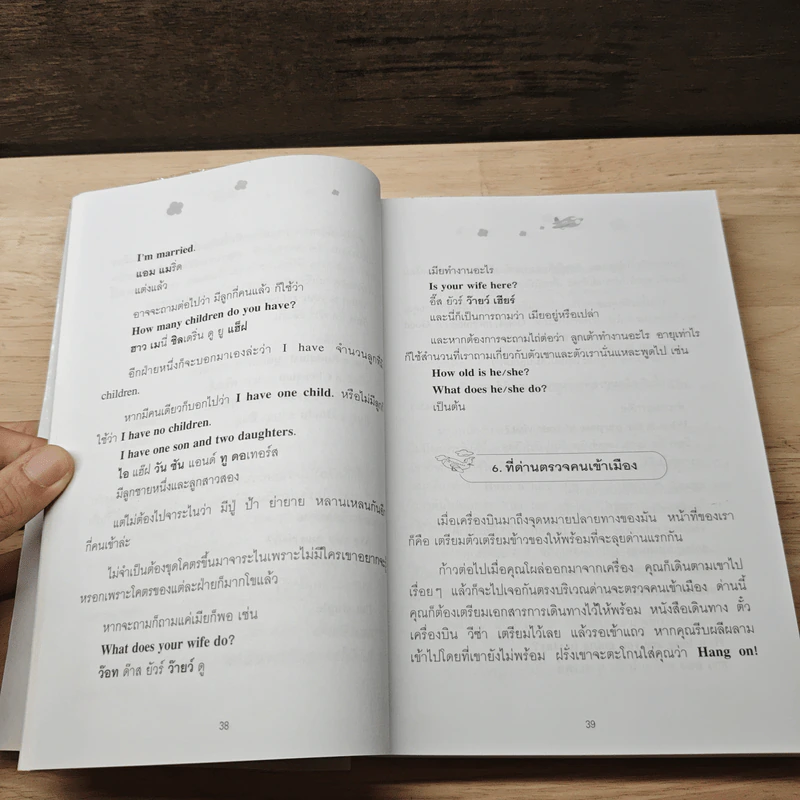 I'm married.
แอม แมริด
แต่งแล้ว
อาจจะถามต่อไปว่า มีลูกกี่คนแล้ว ก็ใช้ว่า
How many children do you have?
ฮาว เมนี่ ชิลเดริ่น ดู ยู แฮ็ฝ
อีกฝ่ายหนึ่งก็จะบอกมาเองล่ะว่า I have จำนวนลูกที่มี
children.
หากมีคนเดียวก็บอกไปว่า I have one child. หรือไม่มีลูกก็
ใช้ว่า I have no children.
I have one son and two daughters.
ไอ แฮ็ฝ วัน ซัน แอนด์ ทู ดอเทอร์ส
มีลูกชายหนึ่งและลูกสาวสอง
แต่ไม่ต้องไปจาระไนว่า มีปู่ ป้า ย่ายาย หลานเหลนกัน
กี่คนเข้าล่ะ
ไม่จำเป็นต้องขุดโคตรขึ้นมาจาระไนเพราะไม่มีใครเขาอยากจะ
หรอกเพราะโคตรของแต่ละฝ่ายก็มากโขแล้ว
หากจะถามก็ถามแค่เมียก็พอ เช่น
What does your wife do?
ว๊อท ด๊าส ยัวร์ ว๊ายว์ ดู
38
เมียทำงานอะไร
Is your wife here?
อี๊ส ยัวร์ ว๊ายว์ เฮียร์
และนี่ก็เป็นการถามว่า เมียอยู่หรือเปล่า
และหากต้องการจะถามไถ่ต่อว่า ลูกเต้าทำงานอะไร อายุเท่าไร
ก็ใช้สำนวนที่เราถามเกี่ยวกับตัวเขาและตัวเรานั่นแหละพูดไป เช่น
How old is he/she?
What does he/she do?
เป็นต้น
6. ที่ด่านตรวจคนเข้าเมือง
เมื่อเครื่องบินมาถึงจุดหมายปลายทางของมัน หน้าที่ของเรา
ก็คือ เตรียมตัวเตรียมข้าวของให้พร้อมที่จะลุยด่านแรกกัน
ก้าวต่อไปเมื่อคุณโผล่ออกมาจากเครื่อง คุณก็เดินตามเขาไป
เรื่อยๆ แล้วก็จะไปเจอกันตรงบริเวณด่านจะตรวจคนเข้าเมือง ด่านนี้
คุณก็ต้องเตรียมเอกสารการเดินทางไว้ให้พร้อม หนังสือเดินทาง ตั๋ว
เครื่องบิน วีซ่า เตรียมไว้เลย แล้วรอเข้าแถว หากคุณรีบผลีผลาม
เข้าไปโดยที่เขายังไม่พร้อม ฝรั่งเขาจะตะโกนใส่คุณว่า Hang on!
39